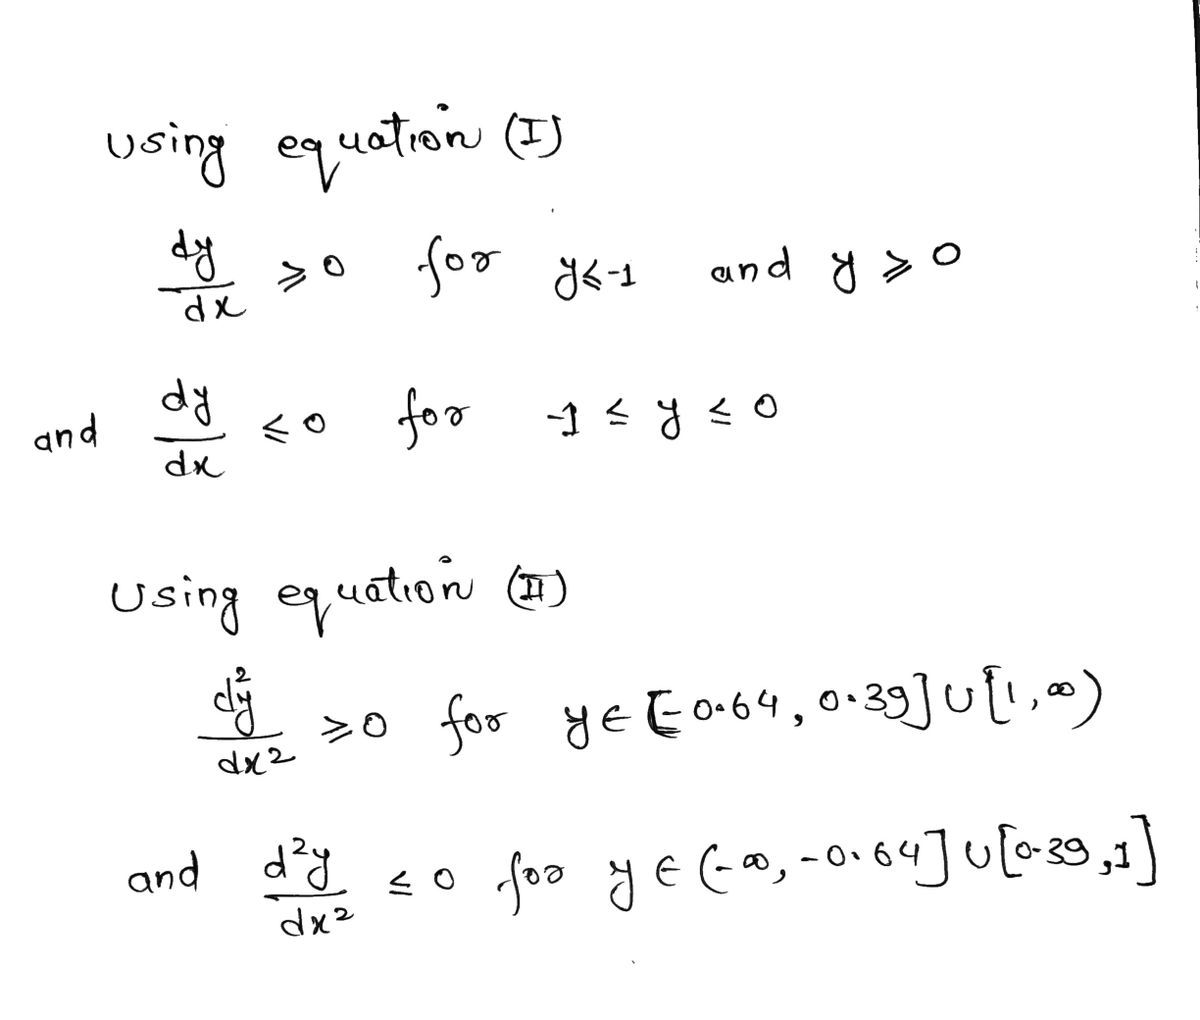 Using equation (I)
dy/dx ⩾ 0 for y⩽-1 and y ⩾ 0
and dy/dx ⩽ 0 for -1 ≤ y ≤ 0
Using equation (II)
d²y/dx² ⩾ 0 for y ∈ [-0.64, 0.39] ∪ [1, ∞)
and d²y/dx² ≤ 0 for y ∈ (-∞, -0.64] ∪ [0.39, 1]